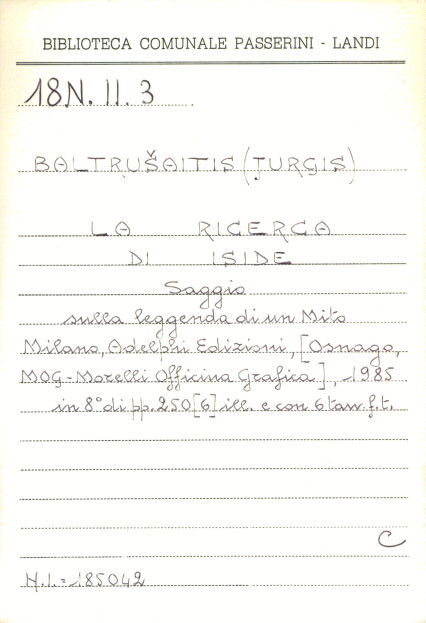 BIBLIOTECA COMUNALE PASSERINI - LANDI
18N. II. 3
BALTRUŠAITIS (JURGIS)
LA RICERCA
DI ISIDE
Saggio
sulla leggenda di un Mito
Milano, Adelphi Edizioni, [Osnago,
MOG-Morelli Officina Grafica], 1985
in 8° di pp. 250 [6] ill. e con 6 tav. f.t.
C
N.I.=185042